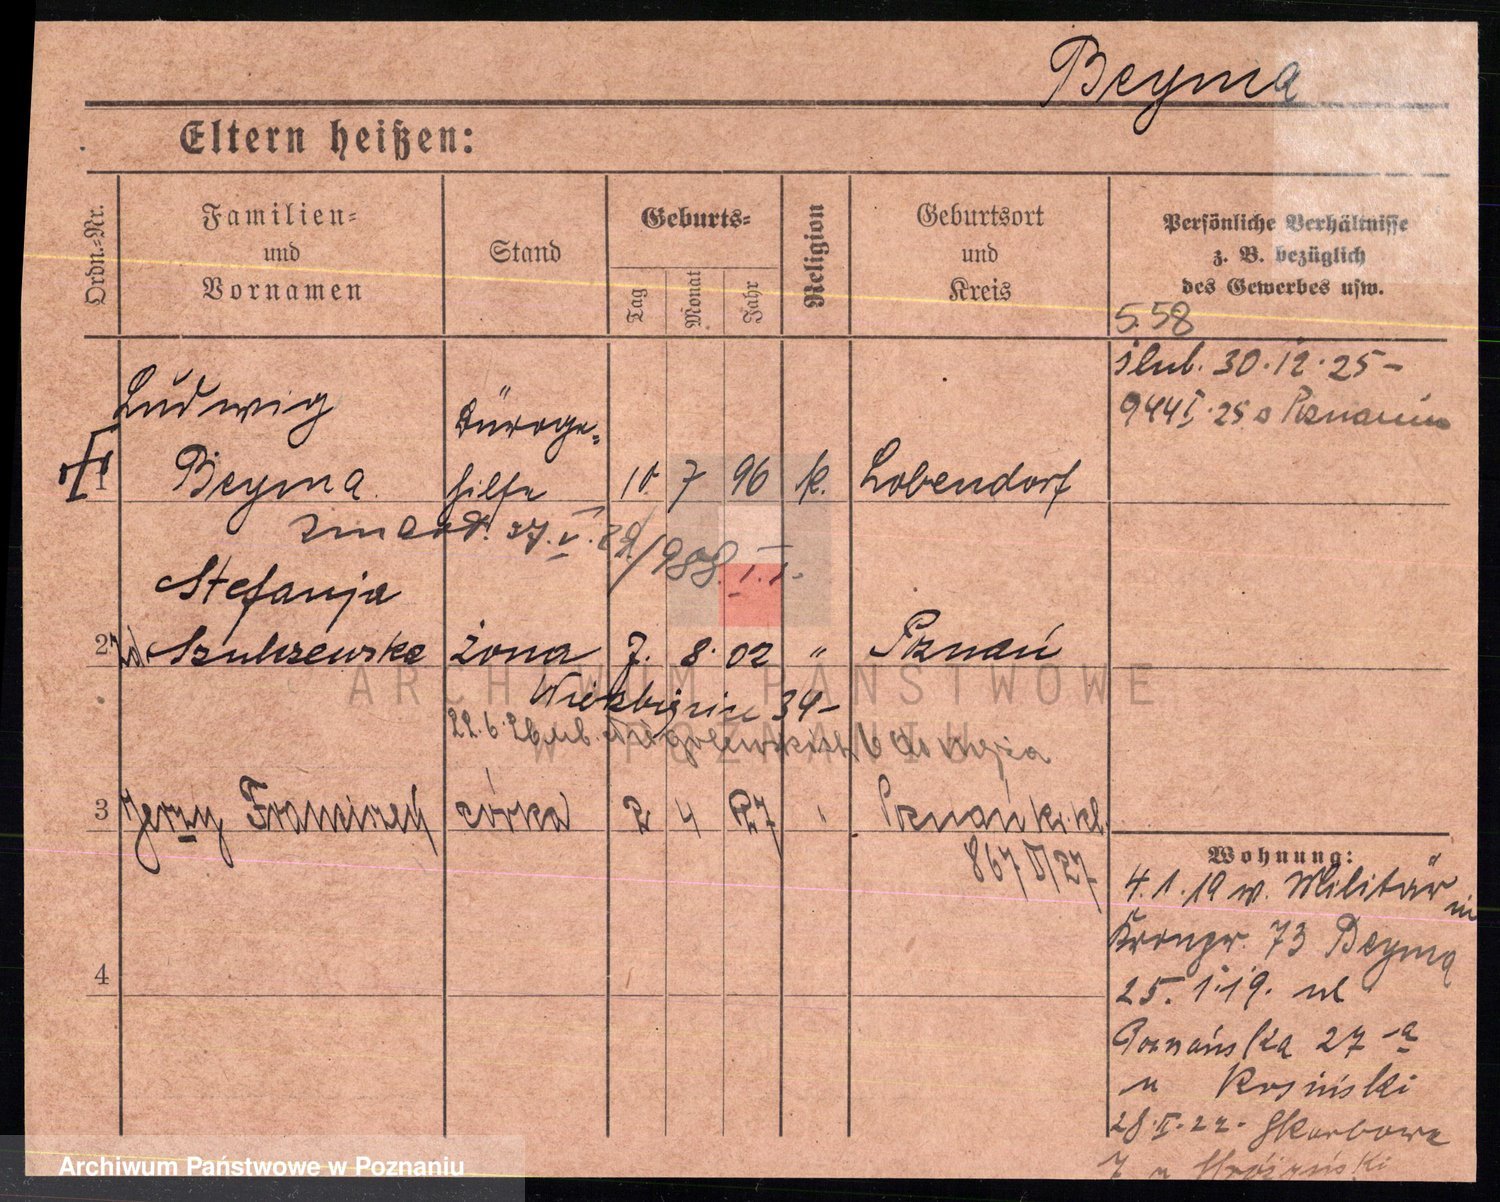 Beyma
Eltern heißen:
Ordn.-Nr.
Familien-
und
Vornamen
Stand
Geburts-
Tag
Monat
Jahr
Religion
Geburtsort
und
Kreis
Persönliche Verhältnisse
z. B. bezüglich
des Gewerbes usw.
5.58
ślub. 30.12.25 -
944 I.25 o Poznaniu
Ludwig
1 Beyma
Bürogehilfe 10. 7 96 k. Lobendorf
zmarł. 27.V.29/988.I.I.
Stefanja
2 zd Szulczewska żona 7. 8. 02 " Poznań
Wierzbięcice 34 -
22.6.26 ul. Niegolewskich 6 do męża
3 Jerzy Franciszek córka 2 4 27 " Poznań
867 /27
4
Wohnung:
4.1.19 w. Militär in
Kronpr. 73 Beyma
25.1.19. ul
Poznańska 27 a
u Kosiński
28.II.22. Skarbowa
7 u
ARCHIWUM PAŃSTWOWE
W POZNANIU
Archiwum Państwowe w Poznaniu